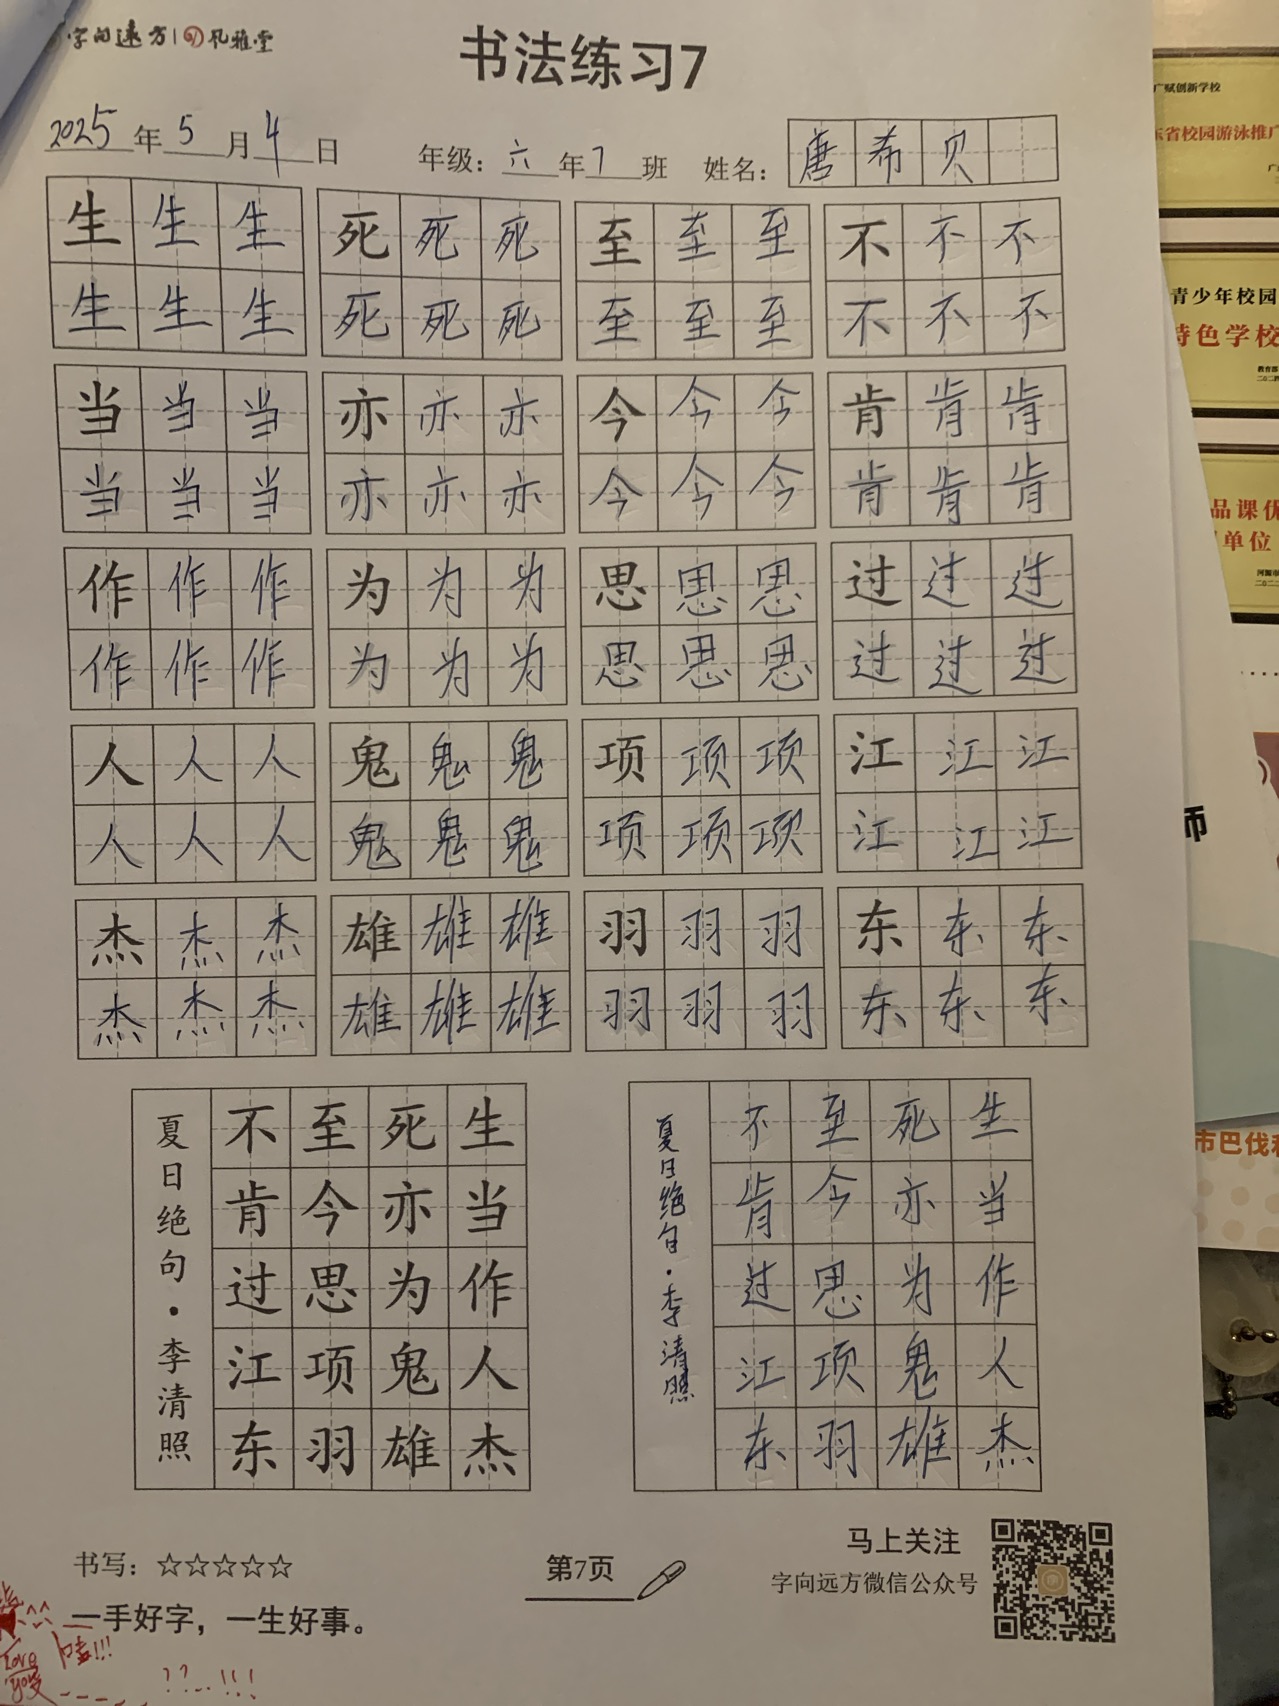 字向远方 | 风雅堂
书法练习7
2025年5月4日 年级：六年7班 姓名：唐希贝
生生生 死死死 至至至 不不不
生生生 死死死 至至至 不不不
当当当 亦亦亦 今今今 肯肯肯
当当当 亦亦亦 今今今 肯肯肯
作作作 为为为 思思思 过过过
作作作 为为为 思思思 过过过
人人人 鬼鬼鬼 项项项 江江江
人人人 鬼鬼鬼 项项项 江江江
杰杰杰 雄雄雄 羽羽羽 东东东
杰杰杰 雄雄雄 羽羽羽 东东东
生当作人杰
死亦为鬼雄
至今思项羽
不肯过江东
夏日绝句·李清照
生当作人杰
死亦为鬼雄
至今思项羽
不肯过江东
夏日绝句·李清照
书写：☆☆☆☆☆
第7页
马上关注
字向远方微信公众号
一手好字，一生好事。
Love
you
??...!!!
广赋创新学校
东省校园游泳推广
青少年校园
特色学校
品课优
单位
师
市巴伐利